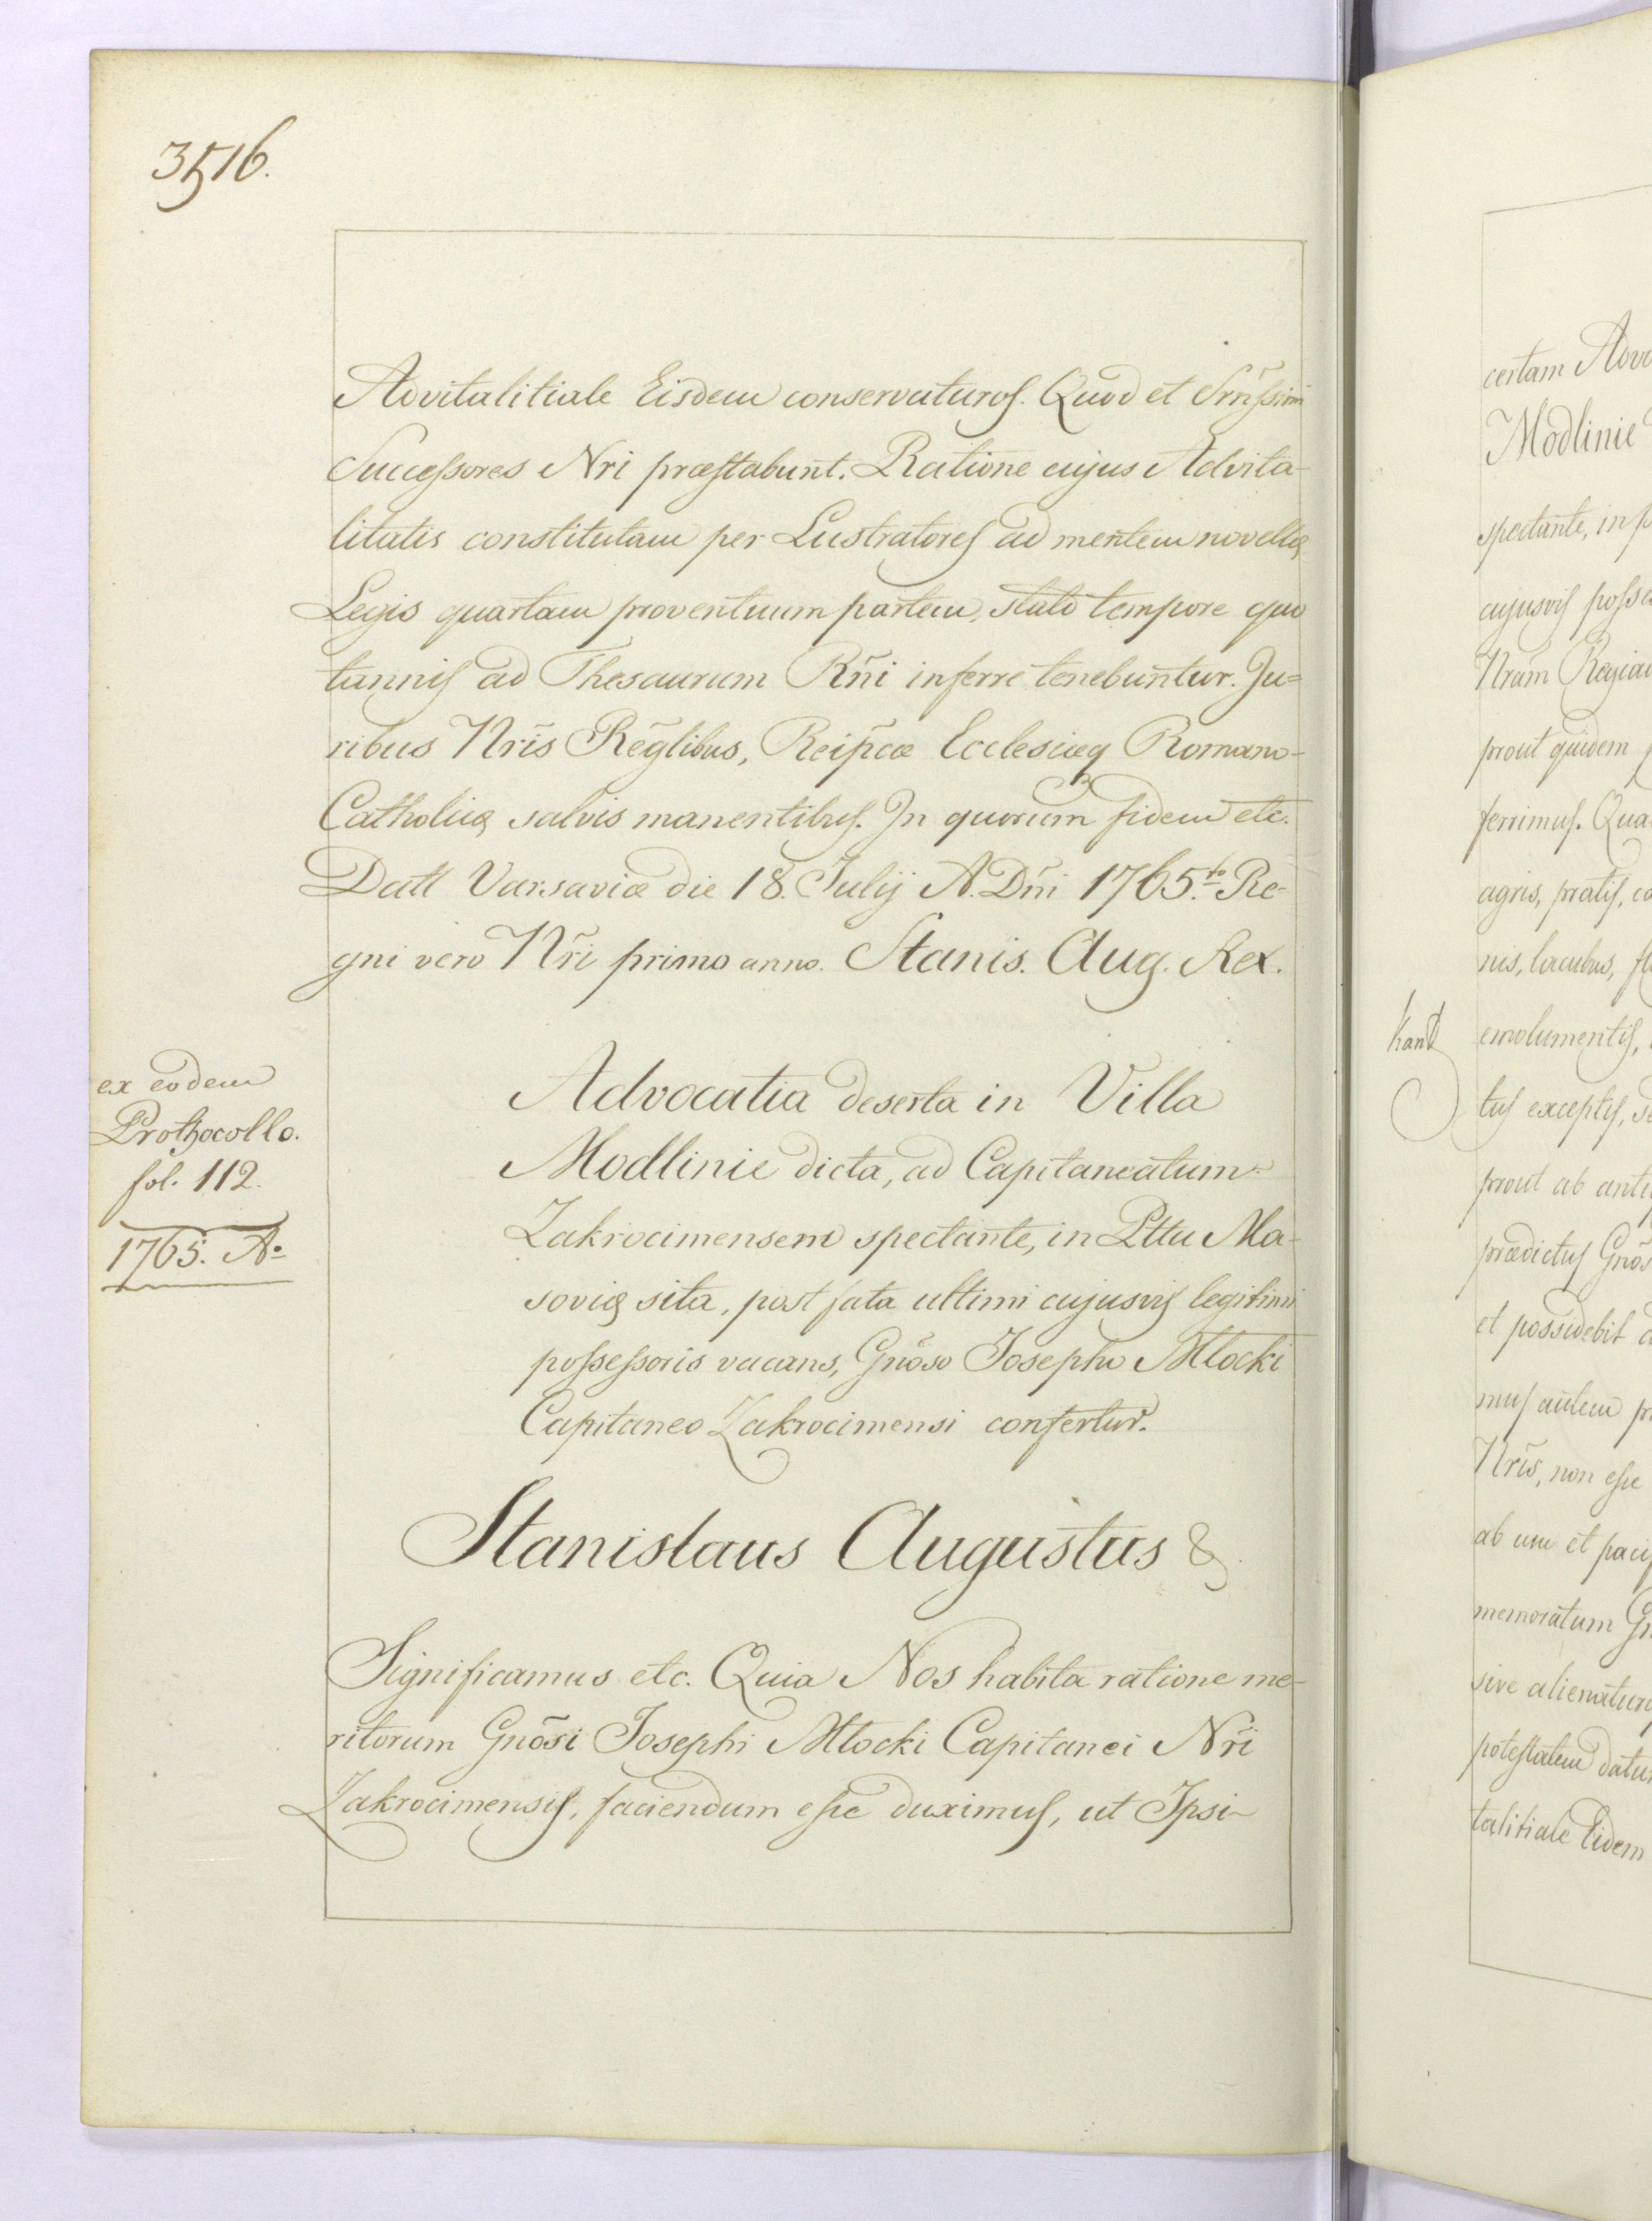 3516.
Advitalitiale Eisdem conservaturos. Quod et Srñssimi
Successores Nri præstabunt. Ratione cujus Advita-
litatis constitutam per Lustratores ad mentem novellæ
Legis quartam proventuum partem, stato tempore quo
tannis ad Thesaurum Rñi inferre tenebuntur. Ju=
ribus Nrĩs Rẽglibus, Reipcæ Ecclesiæq Romano-
Catholicæ salvis manentibus. In quorum fidem etc.
Datt Varsaviæ die 18. Julij A. Dñi 1765.to Re-
gni vero Nrĩ primo anno. Stanis. Aug. Rex.
ex eodem
Prothocollo.
fol. 112.
1765. Ao
Advocatia deserta in Villa
Modlinie dicta, ad Capitaneatum=
Zakrocimensem spectante, in Pttu Ma-
soviæ sita, post fata ultimi cujusvis legitimi
possessoris vacans, Gnõso Josepho Młocki
Capitaneo Zakrocimensi confertur.
Stanislaus Augustus &.
Significamus etc. Quia Nos habita ratione me-
ritorum Gnõsi Josephi Młocki Capitanei Nrĩ
Zakrocimensis, faciendum esse duximus, ut Ipsi
certam
Modlinie
spectante, in
cujusvis
Nram
prout quidem
ferimus.
agris, pratis,
nis, lacubus,
hant emolumentis,
tus exceptis,
prout ab
prædictus
et possidebit
mus autem
Nrĩs, non esse
ab usu et
memoratum
sive
potestatem
talitiale Eidem